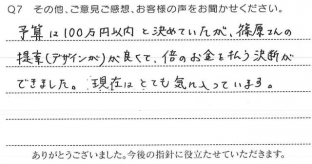 Q7 その他、ご意見ご感想、お客様の声をお聞かせください。
予算は100万円以内と決めていたが、篠原さんの
提案(デザインが)が良くて、倍のお金を払う決断が
できました。現在はとても気に入っています。
ありがとうございました。今後の指針に役立たせていただきます。